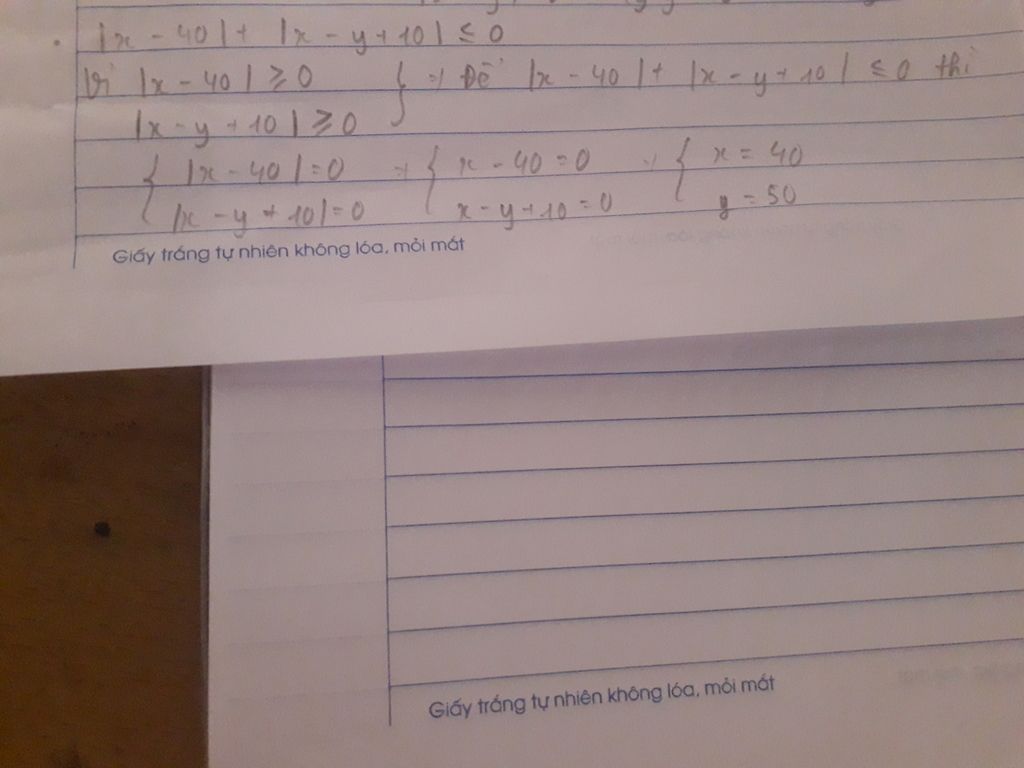 . |x - 40| + |x - y + 10| ≤ 0
Vì |x - 40| ≥ 0 } => Để |x - 40| + |x - y + 10| ≤ 0 thì
|x - y + 10| ≥ 0
{ |x - 40| = 0 => { x - 40 = 0 => { x = 40
|x - y + 10| = 0 x - y + 10 = 0 y = 50
Giấy trắng tự nhiên không lóa, mỏi mắt
Giấy trắng tự nhiên không lóa, mỏi mắt